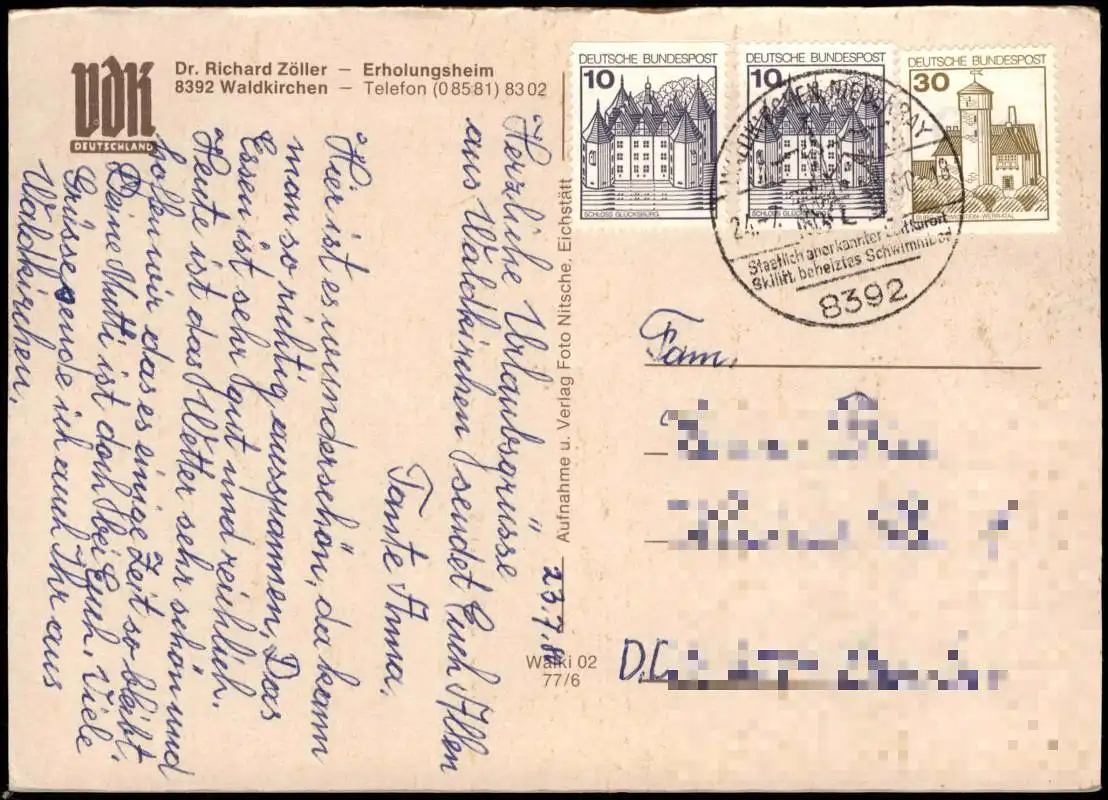 VdK
DEUTSCHLAND
Dr. Richard Zöller – Erholungsheim
8392 Waldkirchen – Telefon (0 85 81) 83 02
23.7.80
Herzliche Urlaubsgrüsse
aus Waldkirchen sendet Euch Allen
Tante Anna.
Hier ist es wunderschön, da kann
man so richtig ausspannen, Das
Essen ist sehr gut und reichlich.
Heute ist das Wetter sehr schön und
hoffen wir das es einige Zeit so bleibt.
Deine Mutti ist doch bei Euch. Viele
Grüsse sende ich auch Ihr aus
Waldkirchen.
Aufnahme u. Verlag Foto Nitsche, Eichstätt
Walki 02
77/6
DEUTSCHE BUNDESPOST
10
SCHLOSS GLÜCKSBURG
DEUTSCHE BUNDESPOST
10
SCHLOSS
DEUTSCHE BUNDESPOST
30
WALDKIRCHEN, NIEDERBAY
Staatlich anerkannter Luftkurort
Skilift, beheiztes Schwimmbad
8392
Fam.